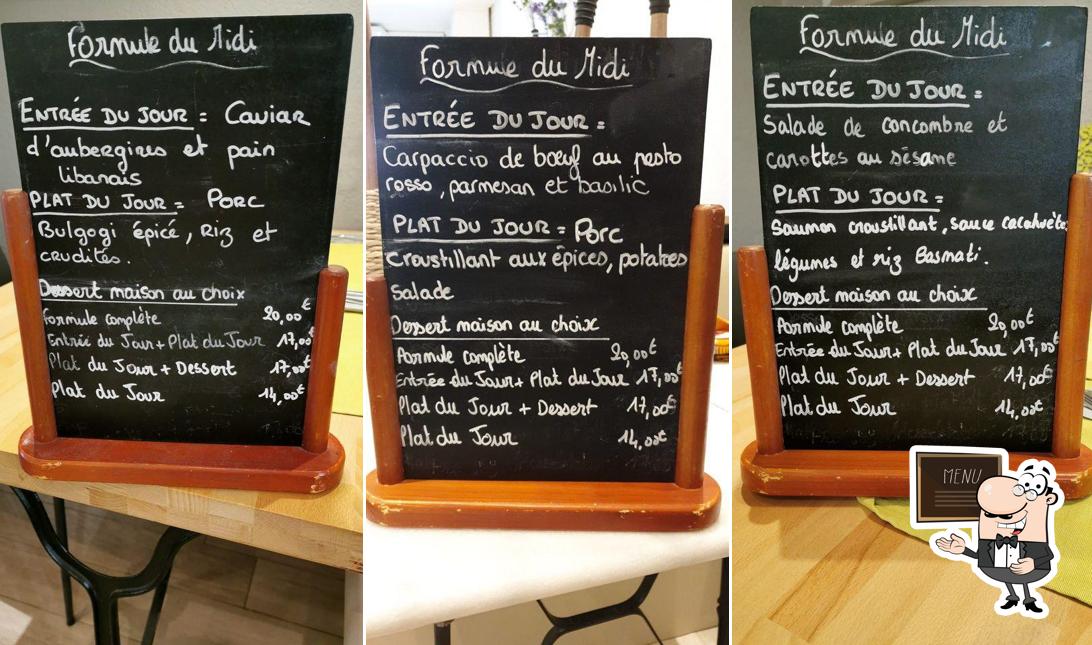 Formule du Midi
ENTRÉE DU JOUR = Caviar
d'aubergines et pain
libanais
PLAT DU JOUR = PORC
Bulgogi épicé, Riz et
crudités.
Dessert maison au choix
Formule complète 20,00€
Entrée du Jour + Plat du Jour 17,00€
Plat du Jour + Dessert 17,00€
Plat du Jour 14,00€
Formule du Midi
ENTRÉE DU JOUR =
Carpaccio de bœuf au pesto
rosso, parmesan et basilic
PLAT DU JOUR = Porc
croustillant aux épices, potatoes
salade
Dessert maison au choix
Formule complète 20,00€
Entrée du Jour + Plat du Jour 17,00€
Plat du Jour + Dessert 17,00€
Plat du Jour 14,00€
Formule du Midi
ENTRÉE DU JOUR =
Salade de concombre et
carottes au sésame
PLAT DU JOUR =
Saumon croustillant, sauce cacahuète,
légumes et riz Basmati.
Dessert maison au choix
Formule complète 20,00€
Entrée du Jour + Plat du Jour 17,00€
Plat du Jour + Dessert 17,00€
Plat du Jour 14,00€
MENU